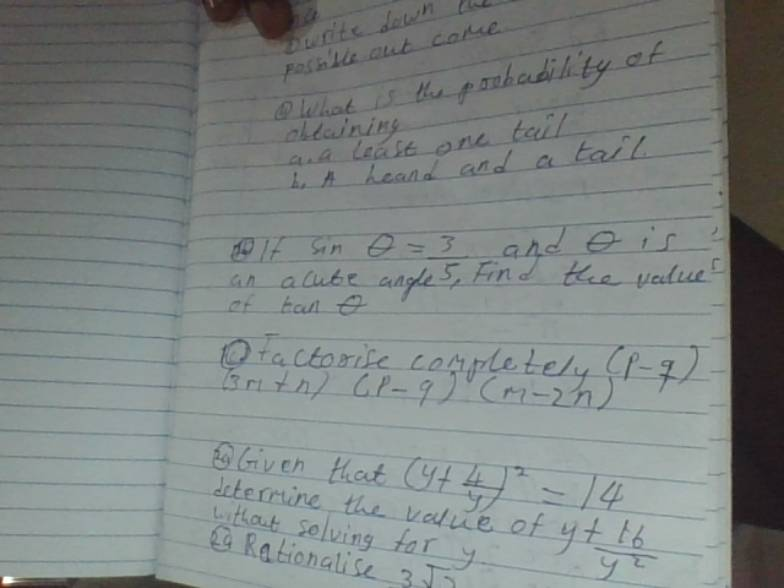 write down the
possible out come
What is the probability of
obtaining
a. a least one tail
b. A heand and a tail.
If Sin θ = 3/5 and θ is
an acute angle, Find the value
of tan θ
Factorise completely (P-q)
(3m+n) (P-q) (m-2n)
Given that (y+4/y)² = 14
determine the value of y+16/y²
without solving for y
Rationalise 3√